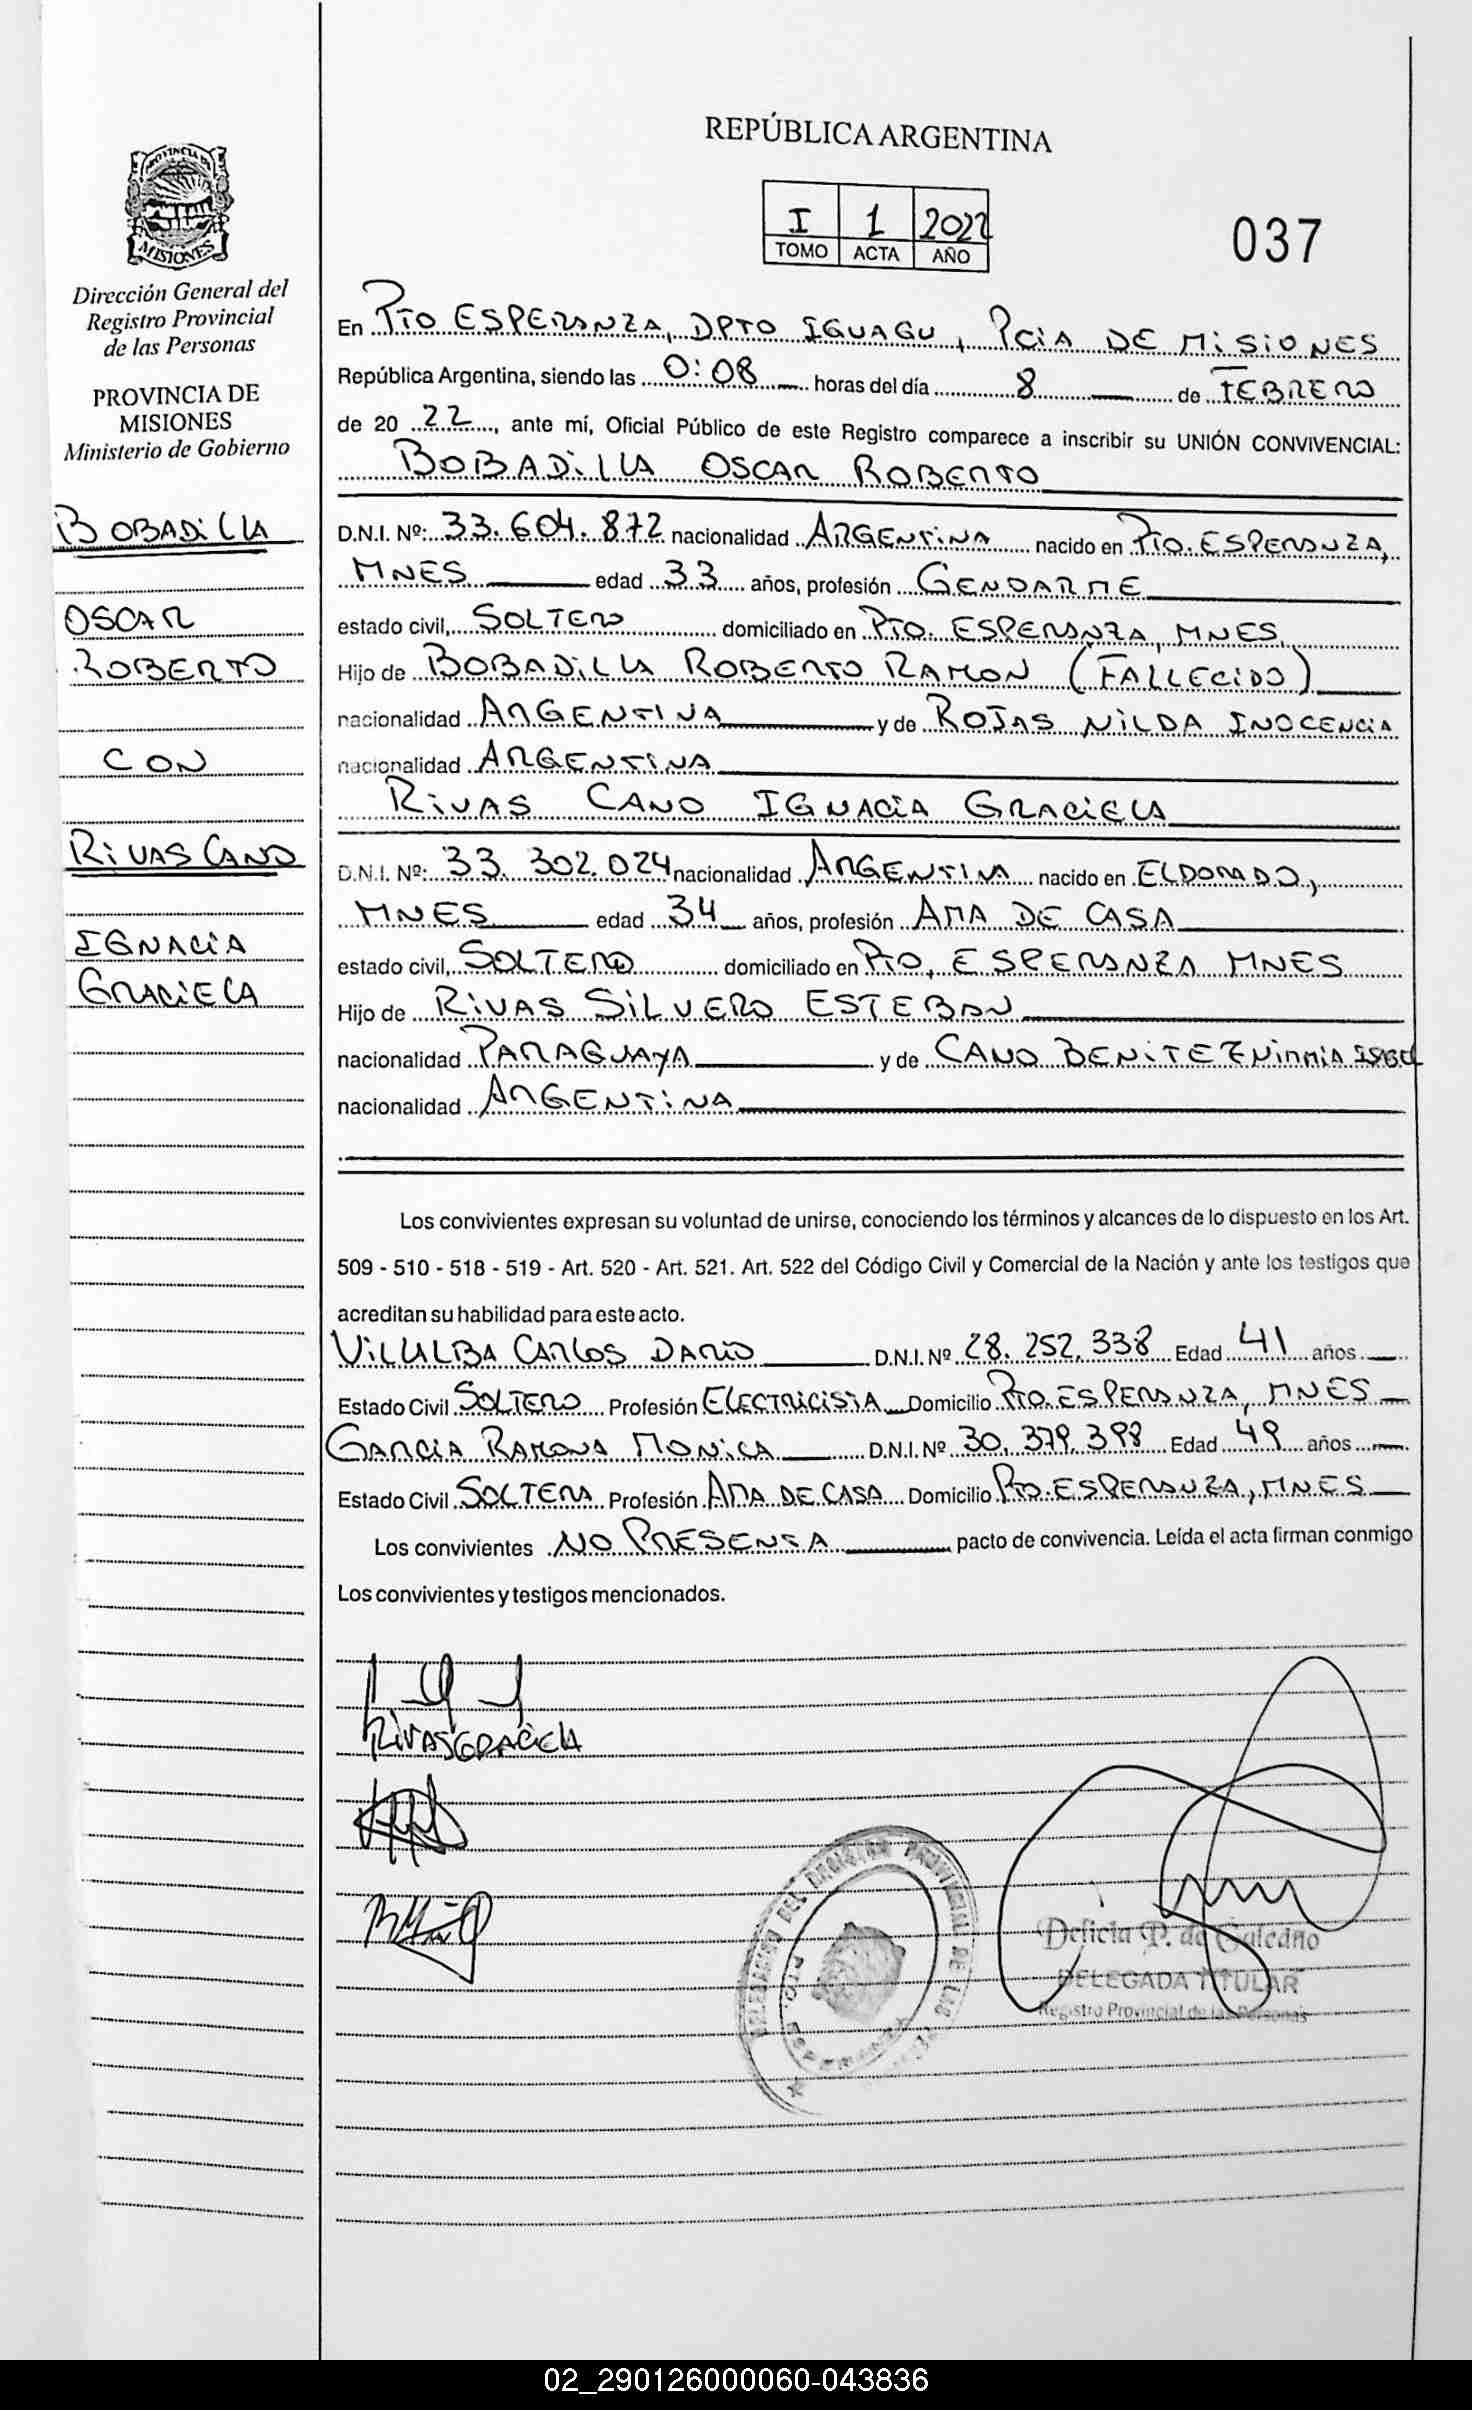 REPÚBLICA ARGENTINA
I 1 2022
TOMO ACTA AÑO
037
PROVINCIA DE
MISIONES
Dirección General del
Registro Provincial
de las Personas
PROVINCIA DE
MISIONES
Ministerio de Gobierno
BOBADILLA
OSCAR
ROBERTO
CON
RIVAS CANO
IGNACIA
GRACIELA
En PTO ESPERANZA, DPTO IGUAGU, PCIA DE MISIONES
República Argentina, siendo las 0:08 horas del día 8 de FEBRERO
de 20 22, ante mí, Oficial Público de este Registro comparece a inscribir su UNIÓN CONVIVENCIAL:
BOBADILLA OSCAR ROBERTO
D.N.I. Nº: 33.604.872 nacionalidad ARGENTINA nacido en PTO. ESPERANZA,
MNES edad 33 años, profesión GENDARME
estado civil, SOLTERO domiciliado en PTO. ESPERANZA, MNES.
Hijo de BOBADILLA ROBERTO RAMON (FALLECIDO)
nacionalidad ARGENTINA y de ROJAS NILDA INOCENCIA
nacionalidad ARGENTINA
RIVAS CANO IGNACIA GRACIELA
D.N.I. Nº: 33.302.024 nacionalidad ARGENTINA nacido en ELDORADO,
MNES edad 34 años, profesión AMA DE CASA
estado civil, SOLTERO domiciliado en PTO. ESPERANZA MNES
Hijo de RIVAS SILVERO ESTEBAN
nacionalidad PARAGUAYA y de CANO BENITEZ
nacionalidad ARGENTINA
Los convivientes expresan su voluntad de unirse, conociendo los términos y alcances de lo dispuesto en los Art.
509 - 510 - 518 - 519 - Art. 520 - Art. 521. Art. 522 del Código Civil y Comercial de la Nación y ante los testigos que
acreditan su habilidad para este acto.
VILLALBA CARLOS DARIO D.N.I. Nº 28.252.338 Edad 41 años
Estado Civil SOLTERO Profesión ELECTRICISTA Domicilio PTO. ESPERANZA, MNES
GARCIA RAMONA MONICA D.N.I. Nº 30.379.398 Edad 49 años
Estado Civil SOLTERA Profesión AMA DE CASA Domicilio PTO. ESPERANZA, MNES
Los convivientes NO PRESENTA pacto de convivencia. Leída el acta firman conmigo
Los convivientes y testigos mencionados.
RIVAS GRACIELA
PROVINCIAL DE LAS
Delicia P. de Galeano
DELEGADA TITULAR
Registro Provincial de las Personas
02_290126000060-043836